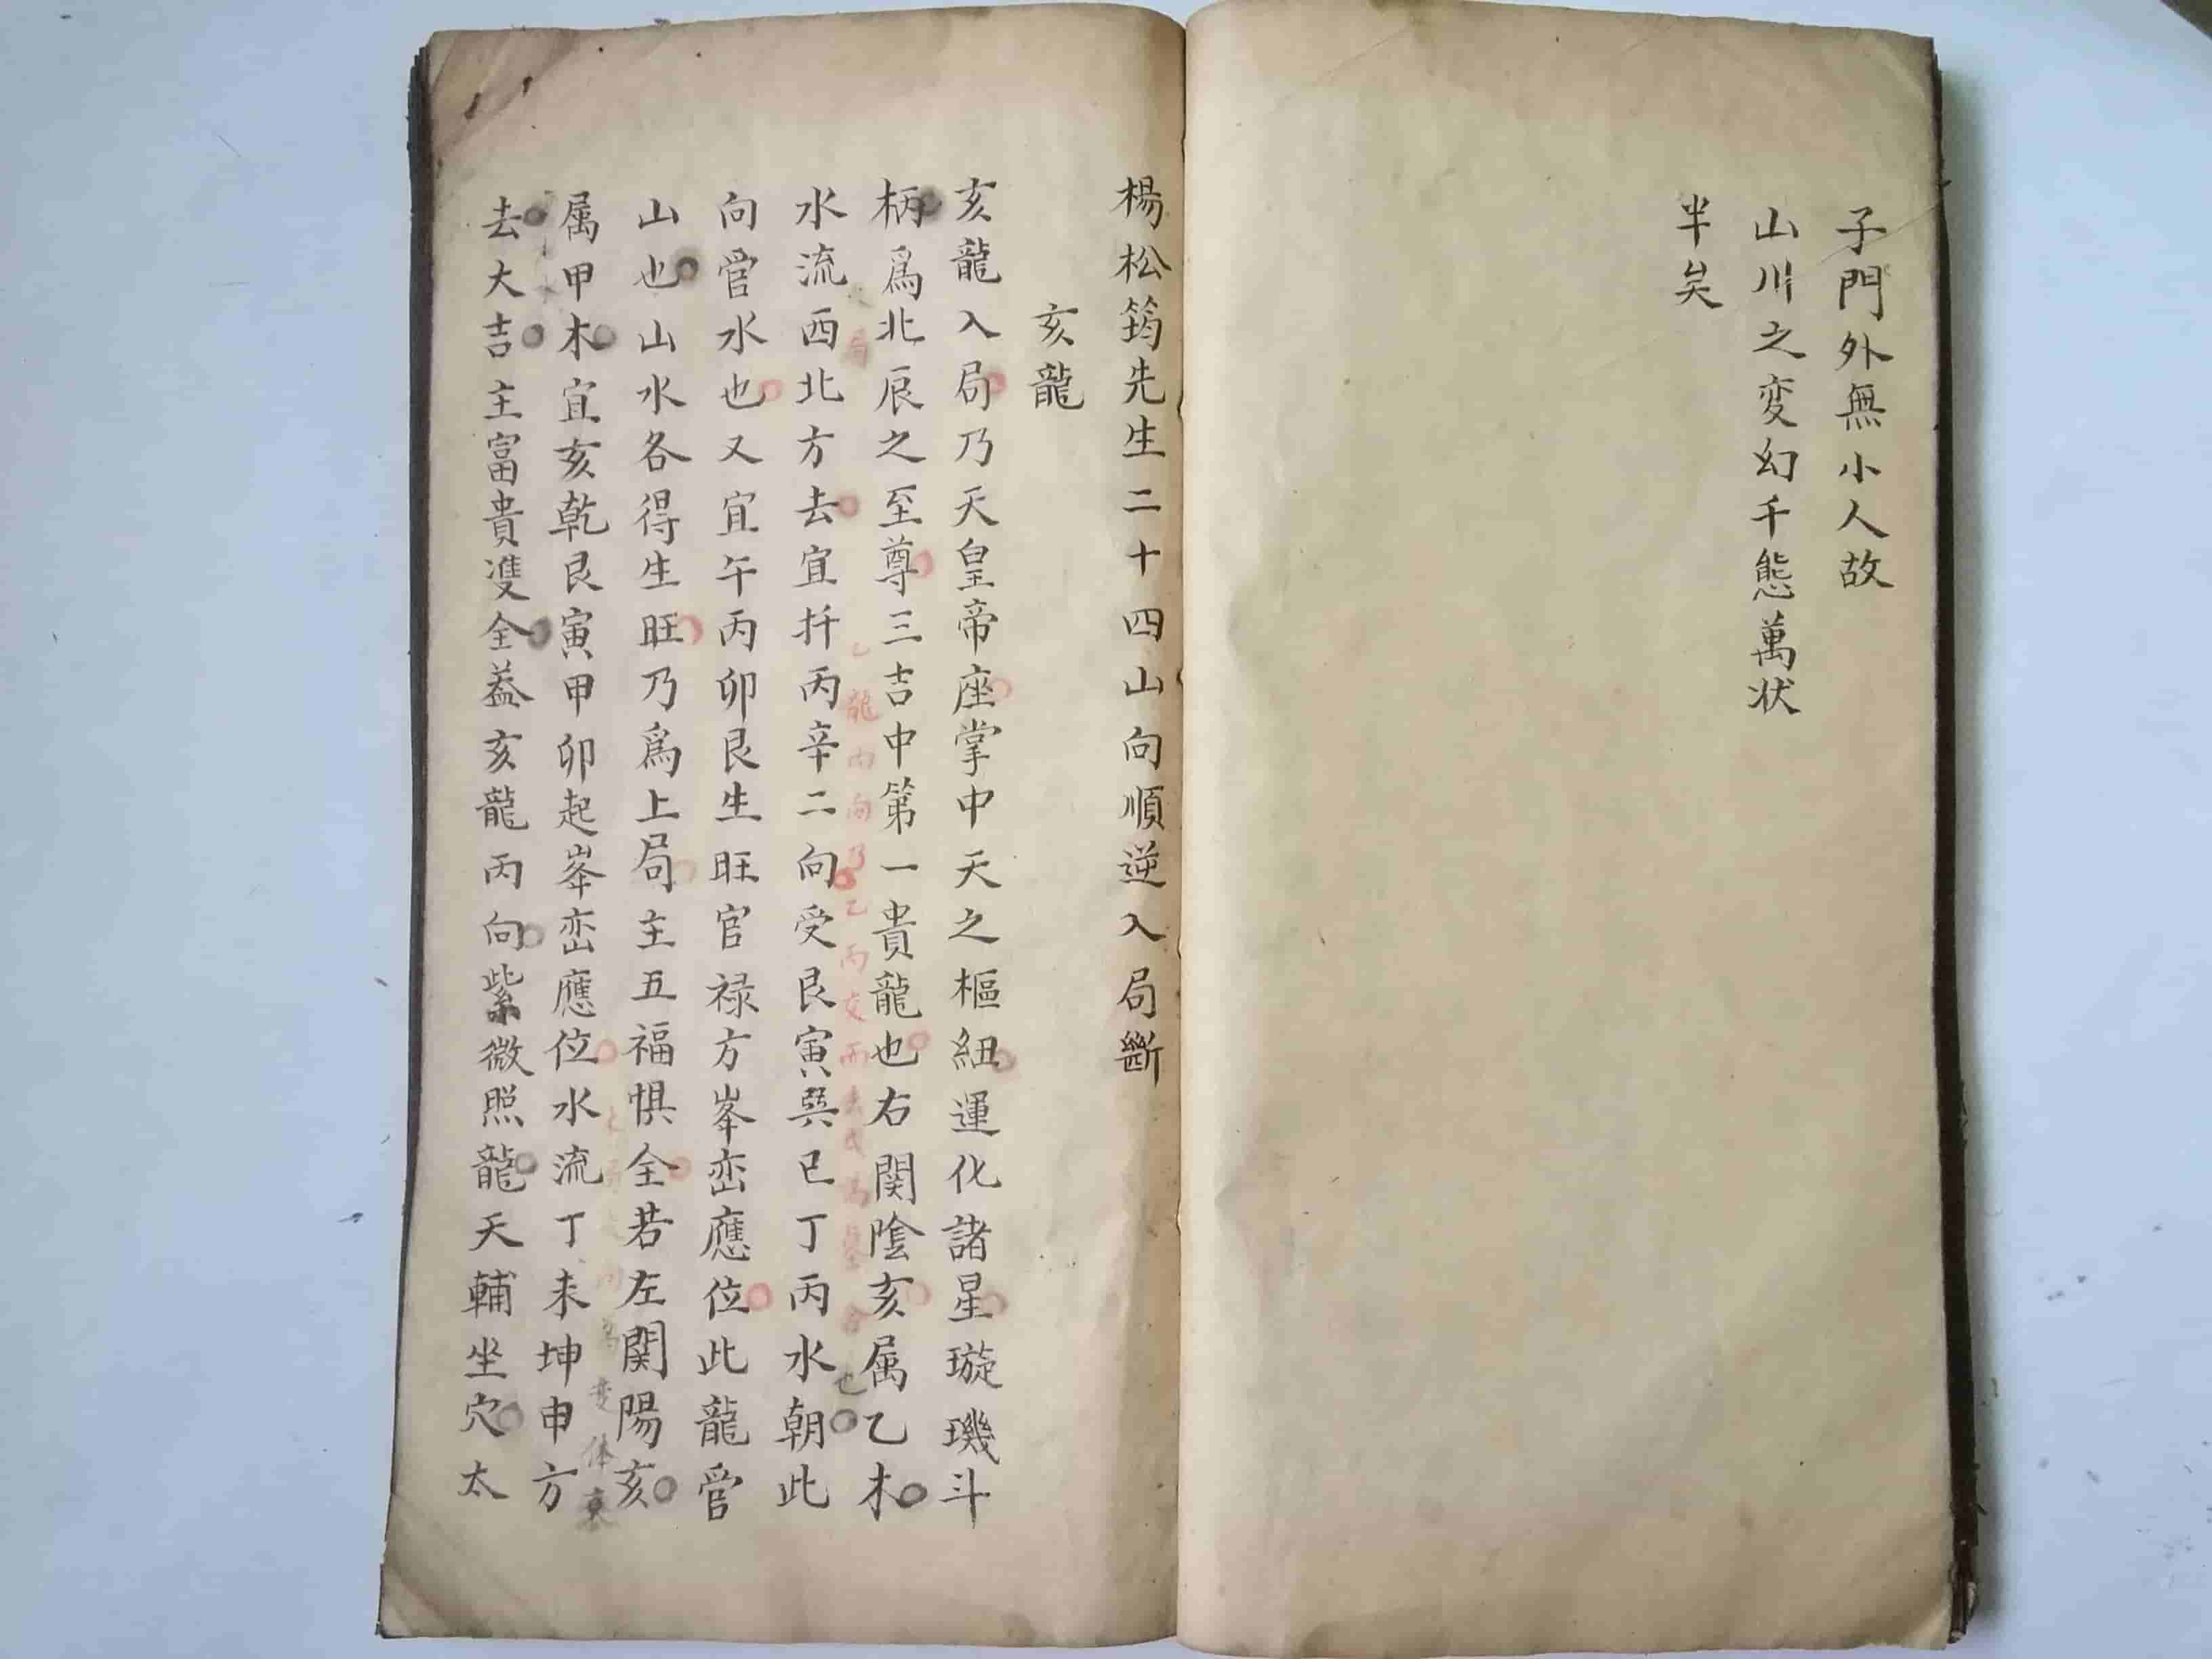 子門外無小人故
山川之変幻千態萬状
半矣
楊松筠先生二十四山向順逆入局斷
亥龍
亥龍入局乃天皇帝座掌中天之樞紐運化諸星璇璣斗
柄爲北辰之至尊三吉中第一貴龍也右関陰亥属乙木
水流西北方去宜扦丙辛二向受艮寅巽巳丁丙水朝此
向官水也又宜午丙卯艮生旺官禄方峯峦應位此龍官
山也山水各得生旺乃爲上局主五福惧全若左関陽亥
属甲木宜亥乾艮寅甲卯起峯峦應位水流丁未坤申方
去大吉主富貴雙全葢亥龍丙向紫微照龍天輔坐穴太
局
龍丙向乃乙丙交而
也
変体